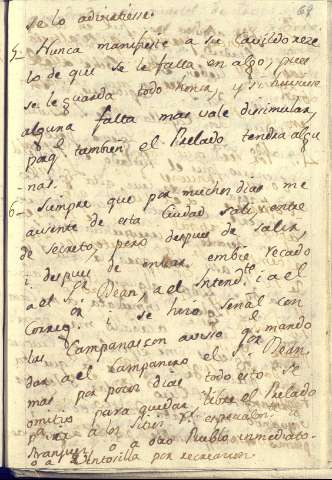 68
se lo advirtiesse.
5 Nunca manifeste a su Cavildo reze
lo de que se le falta en algo, pues
se le guarda todo honor, y si huviesse
alguna falta mas vale disimular,
porq.e tambien el Prelado tendra algu
nas.
6 Siempre que por muchos dias me
ausente de esta Ciudad sali entre
de secreto, pero despues de salir,
i despues de entrar embie recado
a el S.r Dean, a el Intend.te i a el
Correg.or i se hizo señal con
las Campanas con aviso q.e mando
dar a el campanero el S.r Dean
mas por pocos dias todo esto se
omitio para quedar libre el Prelado
para ir a los Sitios R.s
o a otro Pueblo inmediato
o a Ventosilla por recreacion.